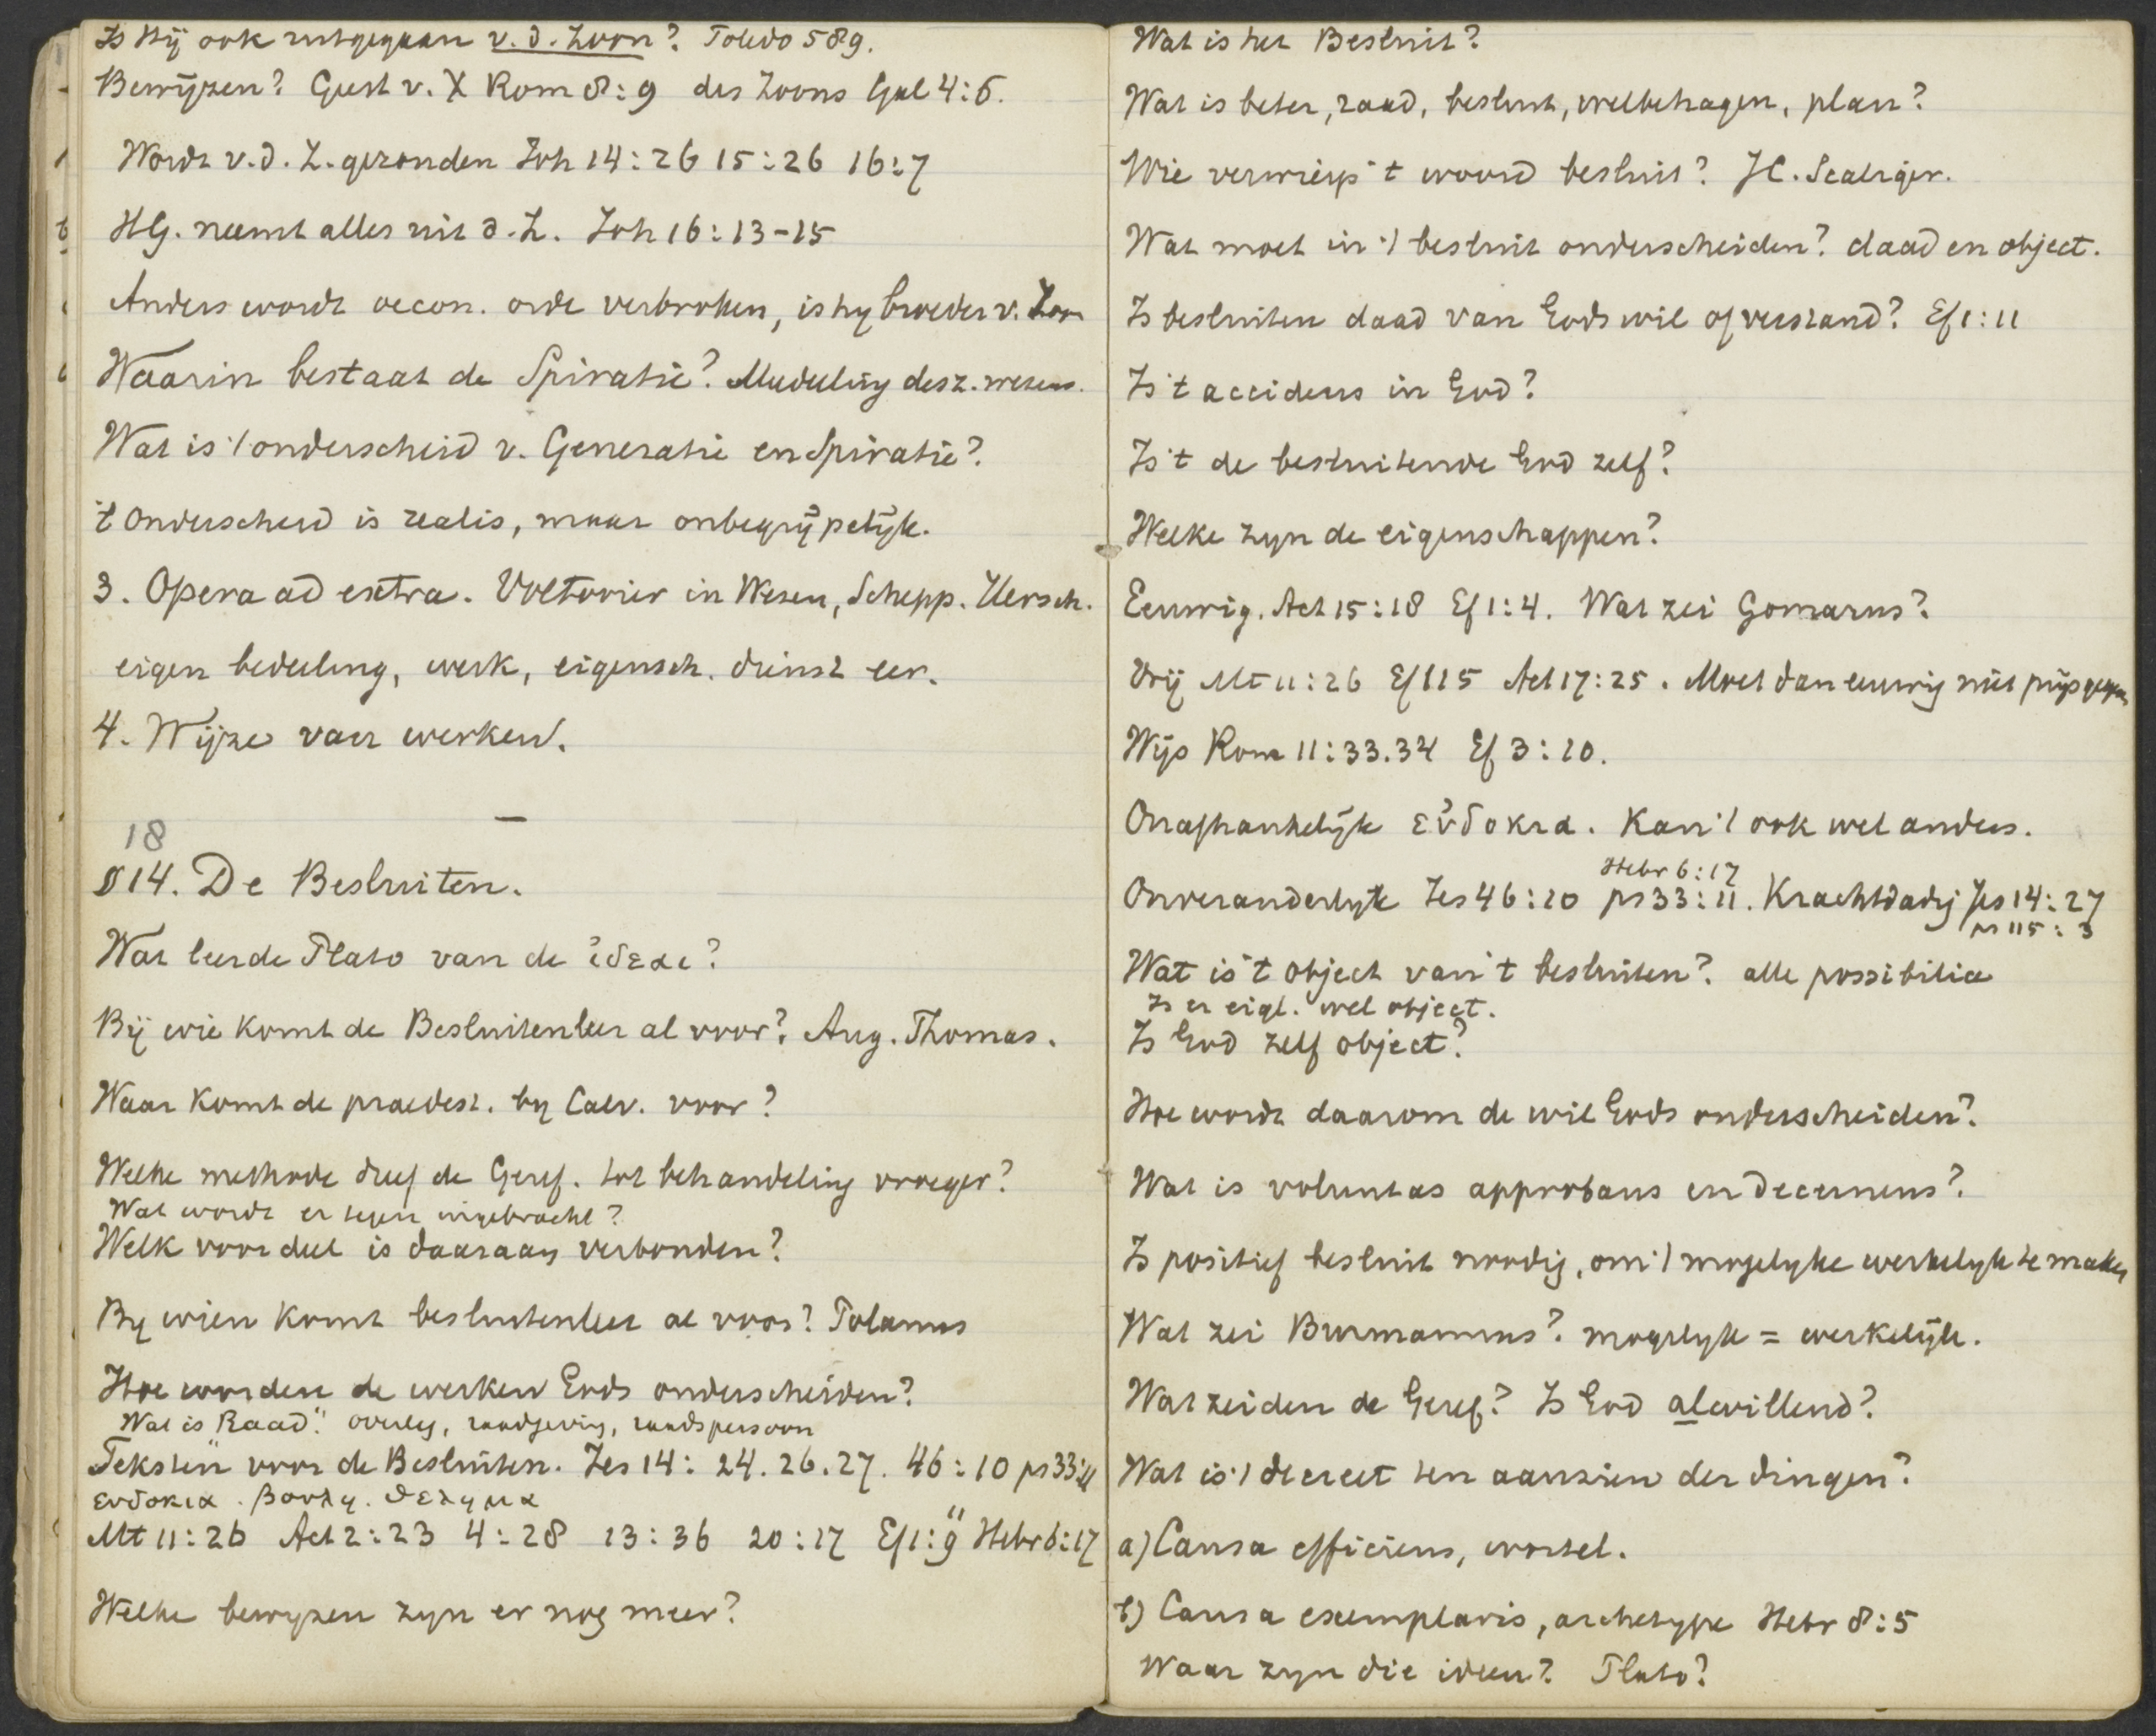 Is Hij ook uitgegaan v. d. Zoon? Toledo 589.
Bewijzen? Geest v. X Rom 8:9 des Zoons Gal 4:6.
Wordt v. d. Z. gezonden Joh 14:26 15:26 16:7
HG. neemt alles uit d. Z. Joh 16:13-15
Anders wordt oecon. orde verbroken, is hy broeder v. Zoon
Waarin bestaat de Spiratie? Mededeling desz. wezens.
Wat is 't onderscheid v. Generatie en Spiratie?
't Onderscheid is realis, maar onbegrijpelijk.
3. Opera ad extra. Voltooier in Wezen, Schepp. Hersch.
eigen bedeeling, werk, eigensch. dienst eer.
4. Wijze van werken.
18
§ 14. De Besluiten.
Wat leerde Plato van de ἰδεαι?
Bij wie komt de Besluitenleer al voor? Aug. Thomas.
Waar komt de praedest. by Calv. voor?
Welke methode dreef de Geref. tot behandeling vroeger?
Wat wordt er tegen ingebracht?
Welk voordeel is daaraan verbonden?
By wien komt besluitenleer al voor? Polanus
Hoe worden de werken Gods onderscheiden?
Wat is "Raad". overleg, raadgeving, raadspersoon
Teksten voor de Besluiten. Jes 14: 24. 26. 27. 46:10 ps 33:11
ευδοκια. βουλη. θελημα
Mt 11:26 Act 2:23 4:28 13:36 20:17 Ef 1:9 11 Hebr 6:17
Welke bewyzen zyn er nog meer?
Wat is het Besluit?
Wat is beter, raad, besluit, welbehagen, plan?
Wie verwierp 't woord besluit? JC. Scaliger.
Wat moet in 't besluit onderscheiden? daad en object.
Is besluiten daad van Gods wil of verstand? Ef 1:11
Is 't accidens in God?
Is 't de besluitende God zelf?
Welke zyn de eigenschappen?
Eeuwig. Act 15:18 Ef 1:4. Wat zei Gomarus?
Vrij Mt 11:26 Ef 1 15 Act 17:25. Moet dan eeuwig niet prijsgegeven
Wijs Rom 11:33.34 Ef 3:10.
Onafhankelijk εὐδοκια. Kan 't ook wel anders.
Hebr 6:17
Onveranderlyk Jes 46:10 ps 33:11. Krachtdadig Jes 14:27
ps 115:3
Wat is 't object van 't besluiten? alle possibilia
Is er eigl. wel object.
Is God zelf object?
Hoe wordt daarom de wil Gods onderscheiden?
Wat is voluntas approbans en decernens?
Is positief besluit noodig, om 't mogelyke werkelyk te maken
Wat zei Burmannus? mogelyk = werkelijk.
Wat zeiden de Geref? Is God alwillend?
Wat is 't decreet ten aanzien der dingen?
a) Causa efficiens, wortel.
b) Causa exemplaris, archetype Hebr 8:5
Waar zyn die ideen? Plato?